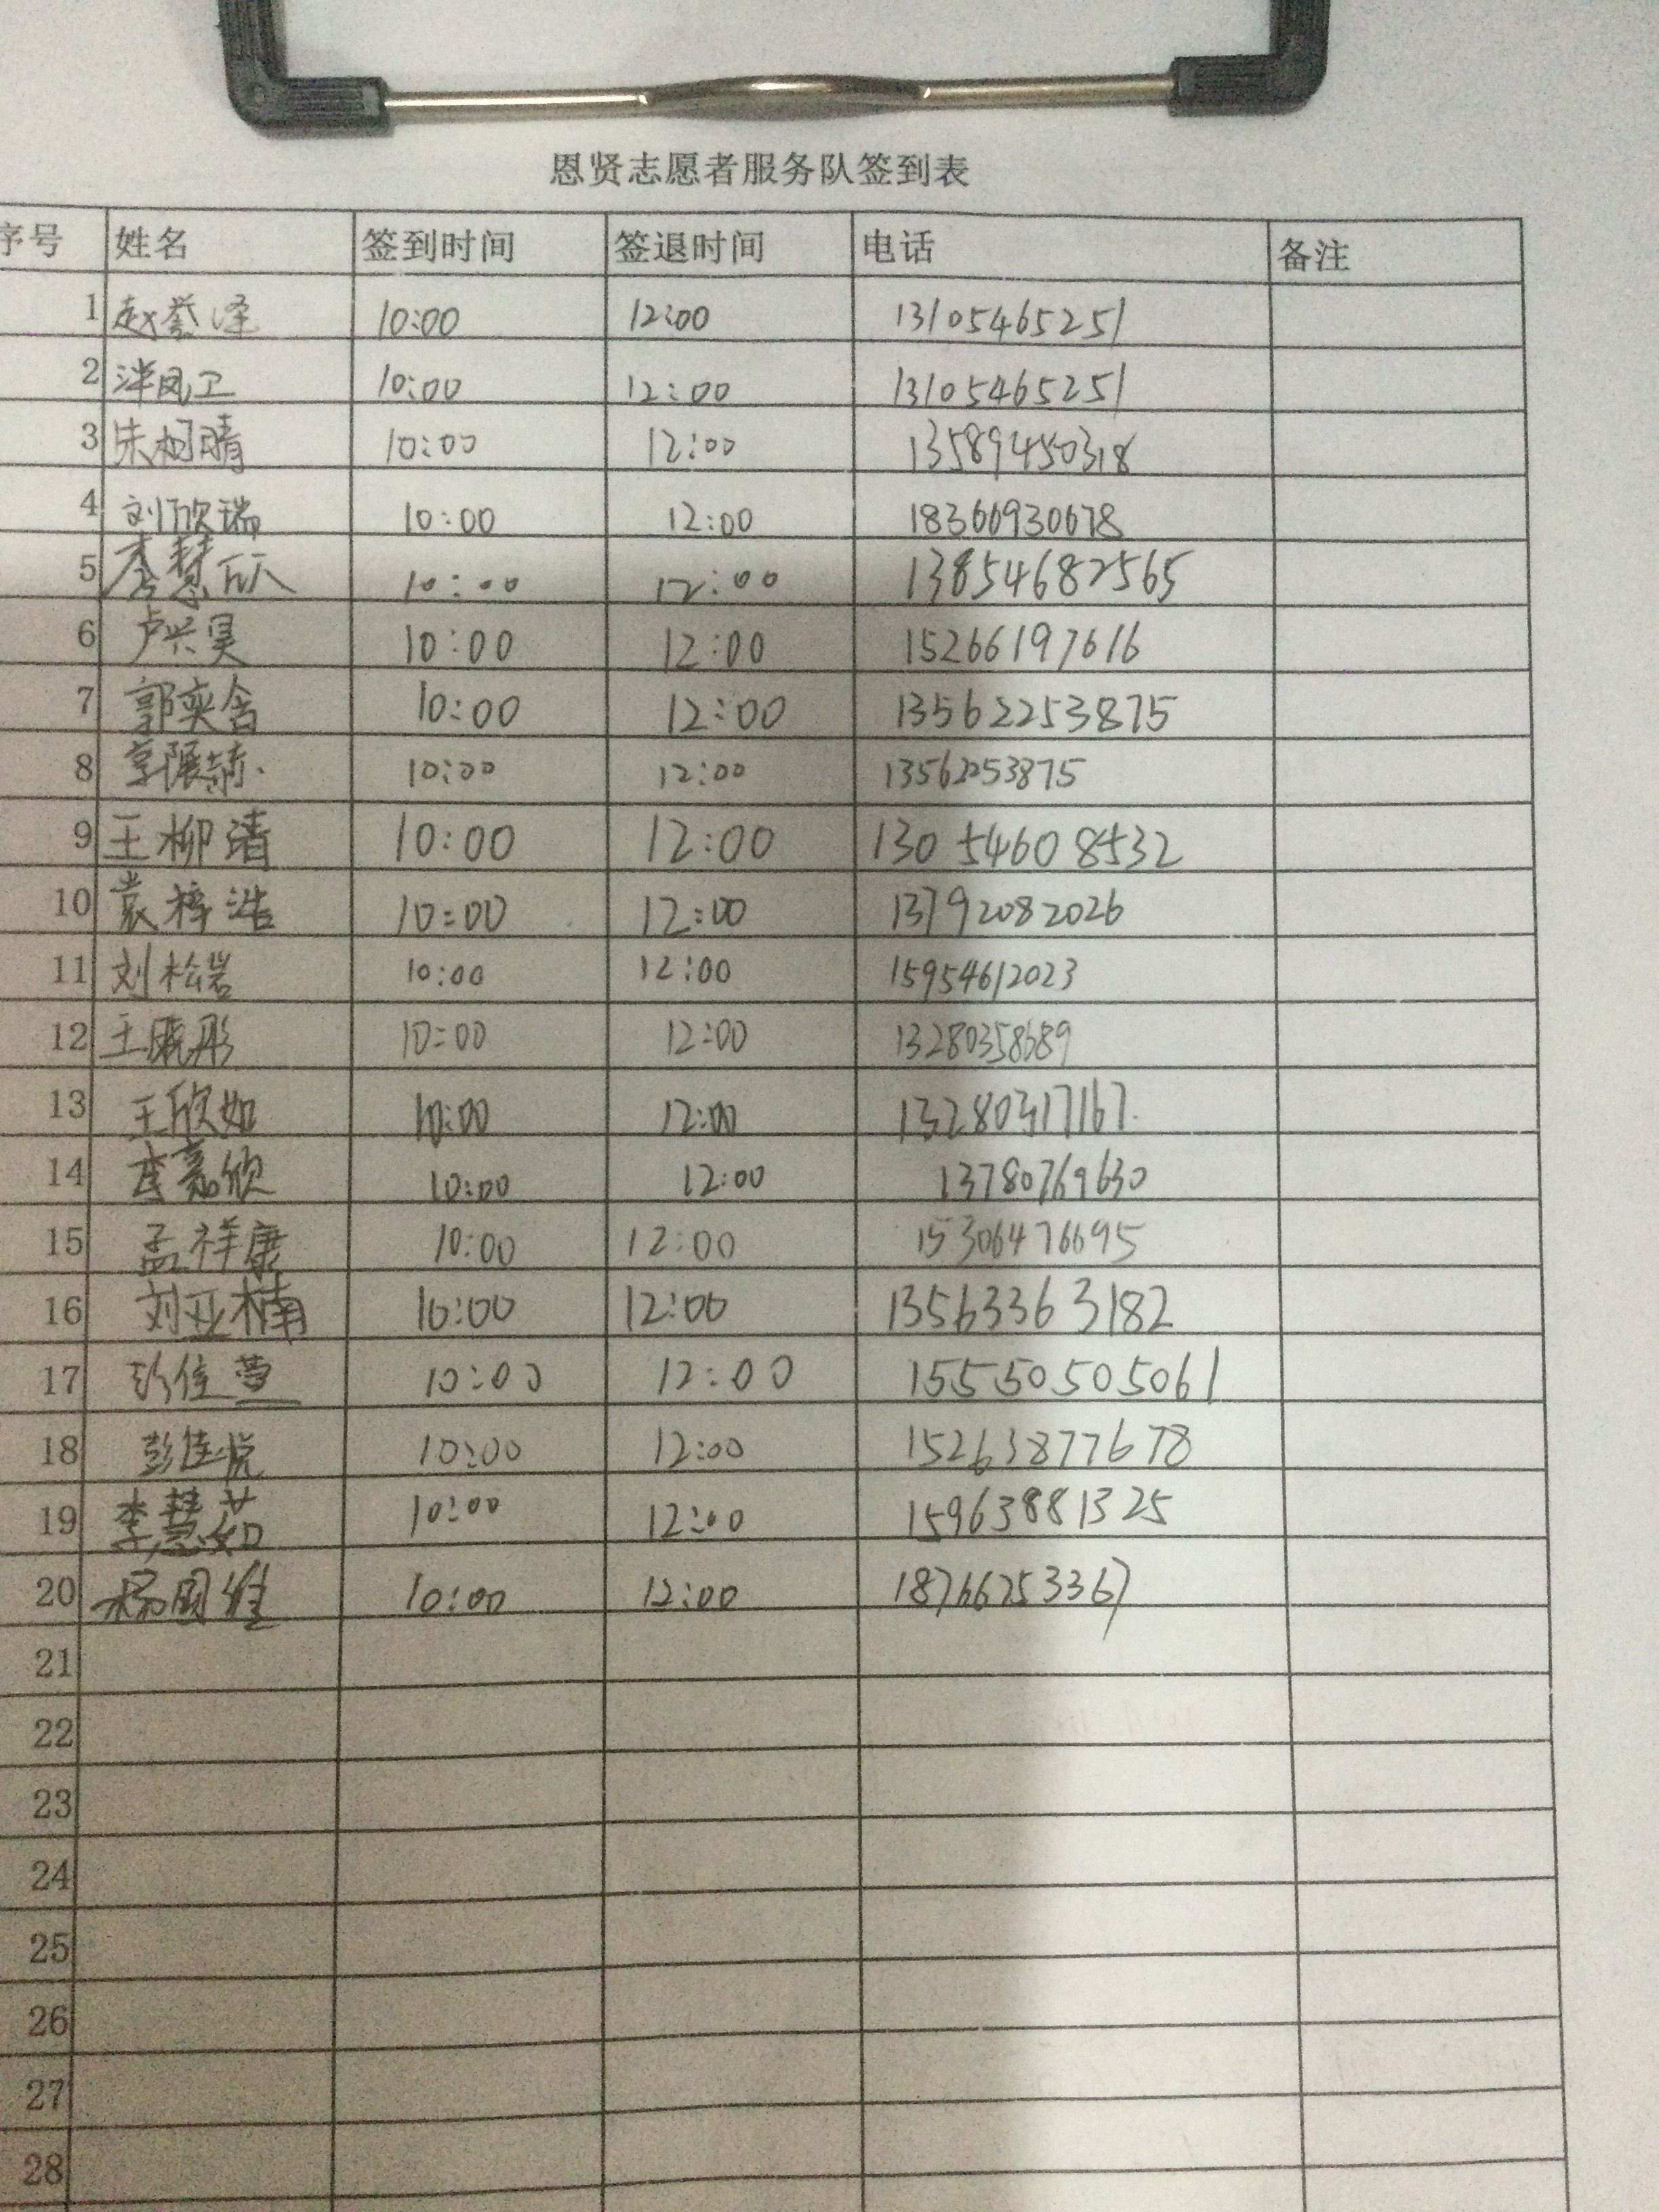 恩贤志愿者服务队签到表
序号 姓名 签到时间 签退时间 电话 备注
1 赵誉泽 10:00 12:00 13105465251
2 洋凤卫 10:00 12:00 13105465251
3 朱柯晴 10:00 12:00 13589450318
4 刘欣瑞 10:00 12:00 18366930678
5 李慧欣 10:00 12:00 13854682565
6 卢兴昊 10:00 12:00 15266197616
7 郭奕含 10:00 12:00 13562253875
8 10:00 12:00 13562253875
9 王柳清 10:00 12:00 130 5460 8532
10 袁梓浩 10:00 12:00 13792082026
11 刘松岩 10:00 12:00 15954612023
12 王晓彤 10:00 12:00 13280358689
13 王欣如 10:00 12:00 13280317167
14 李嘉欣 10:00 12:00 13780769630
15 孟祥康 10:00 12:00 15306476695
16 刘亚楠 10:00 12:00 13563363182
17 彭佳萱 10:00 12:00 15550505061
18 彭佳悦 10:00 12:00 15263877678
19 李慧茹 10:00 12:00 15963881325
20 杨国维 10:00 12:00 18766253367
21
22
23
24
25
26
27
28